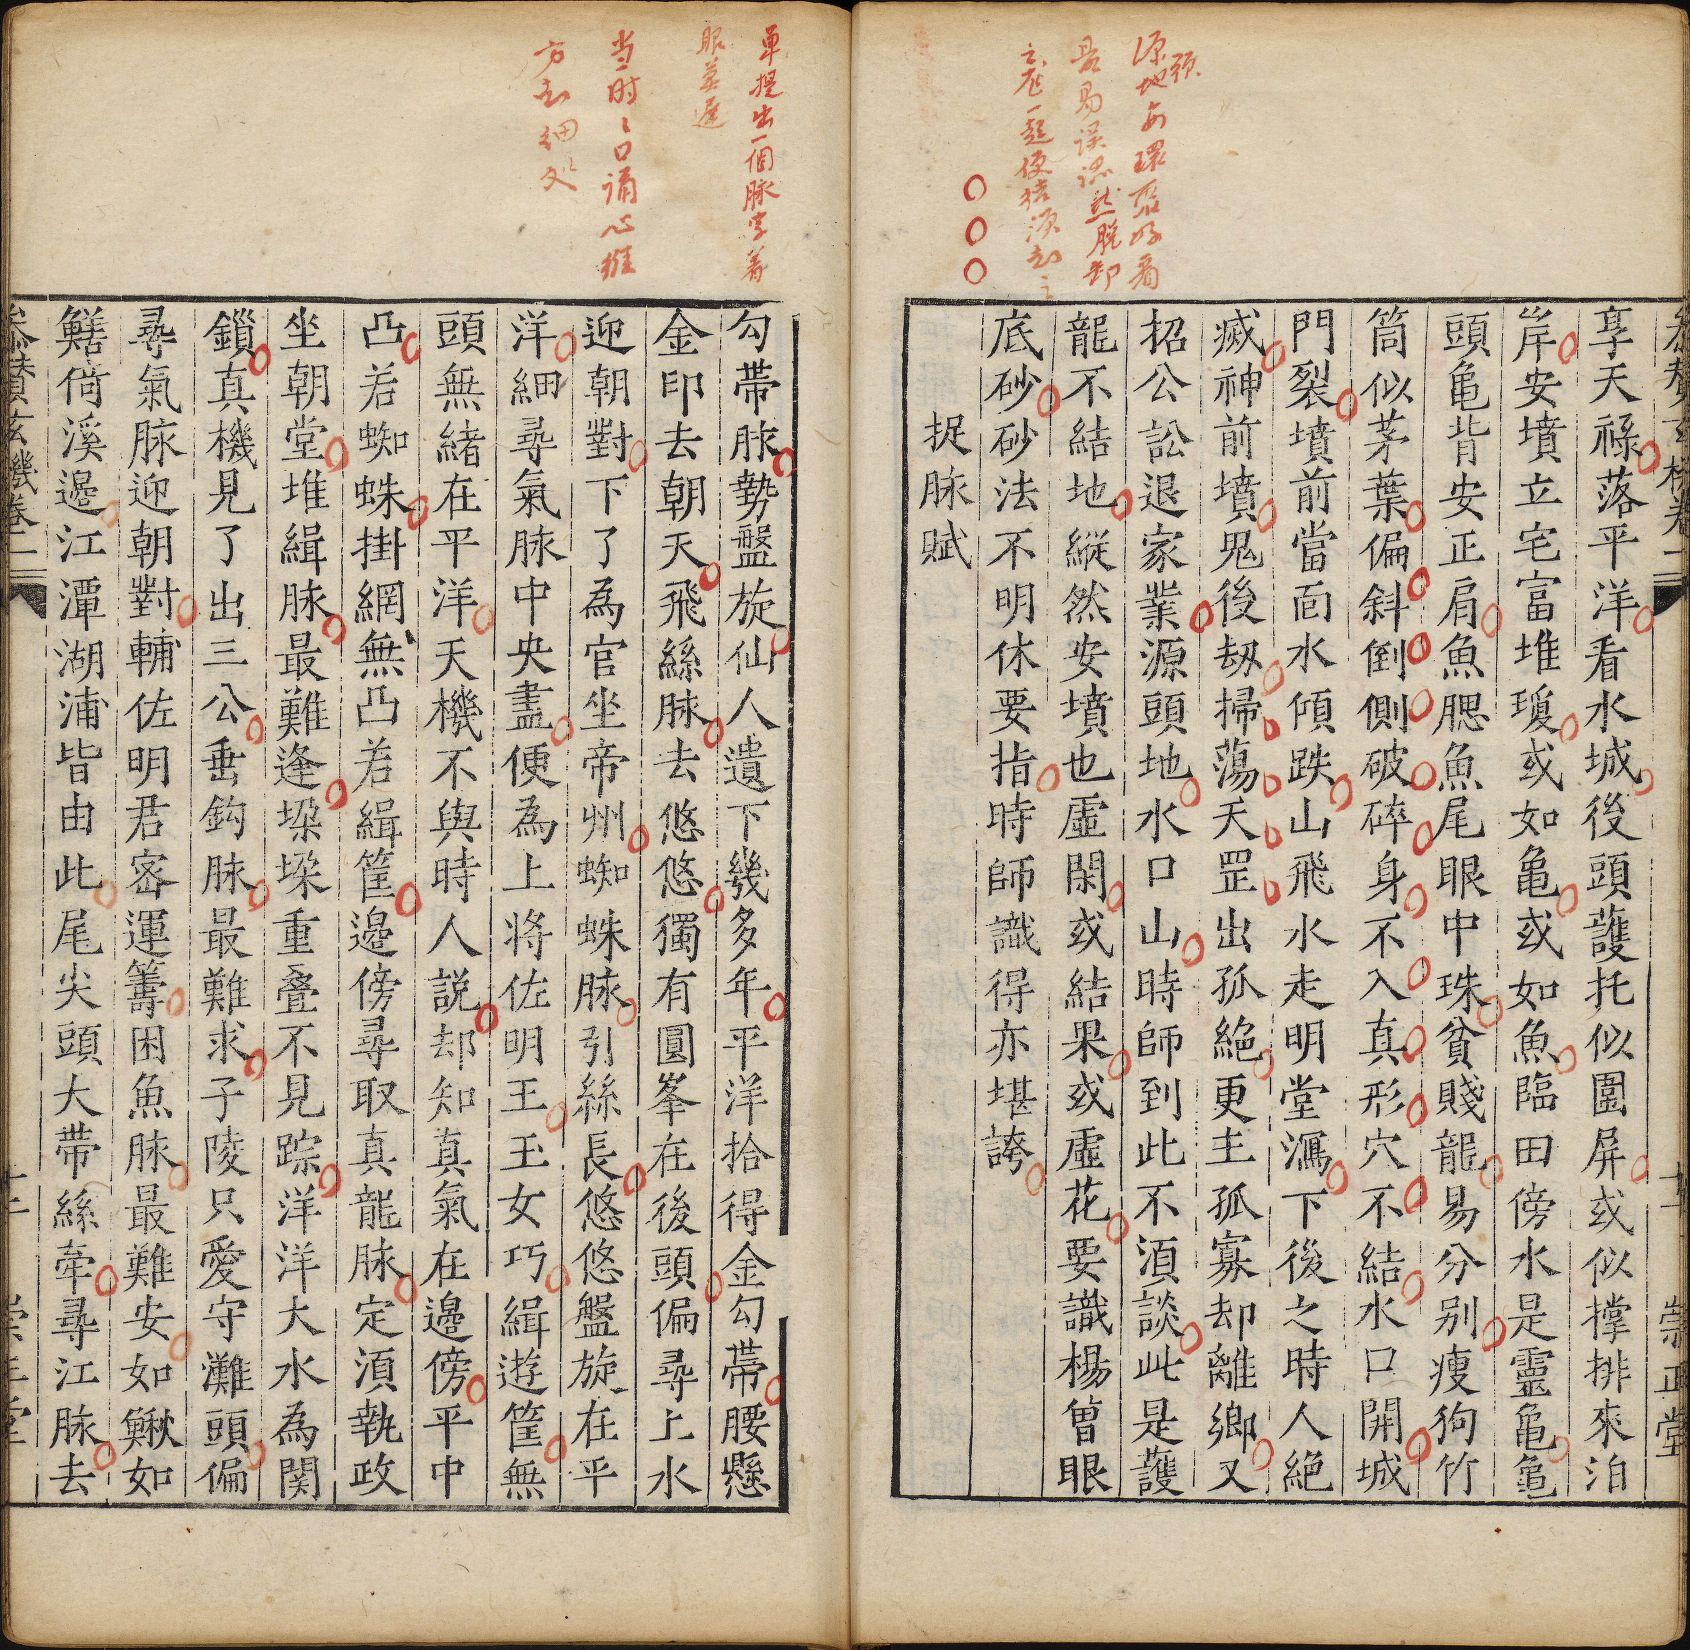 源頭地每環聚好看
最易誤認然脫卸
享天祿落平洋看水城後頭護托似圍屏或似撐排來泊
岸安墳立宅富堆瓊或如龜或如魚臨田傍水是靈龜龜
頭龜背安正肩魚腮魚尾眼中珠貧賤龍易分別瘦狗竹
筒似茅葉偏斜倒側破碎身不入真形穴不結水口開城
門裂墳前當面水傾跌山飛水走明堂瀉下後之時人絕
滅神前墳鬼後刼掃蕩天罡出孤絕更主孤寡却離鄉又
招公訟退家業源頭地水口山時師到此不須談此是護
龍不結地縱然安墳也虛閑或結果或虛花要識楊曾眼
底砂砂法不明休要指時師識得亦堪誇
捉脉賦
崇正堂
單提出一個脉字着
眼英遲
当时口誦心維
方知細
勾帶脉勢盤旋仙人遺下幾多年平洋拾得金勾帶腰懸
金印去朝天飛絲脉去悠悠獨有圓峯在後頭偏尋上水
迎朝對下了為官坐帝州蜘蛛脉引絲長悠悠盤旋在平
洋細尋氣脉中央盡便為上將佐明王玉女巧緝遊筐無
頭無緒在平洋天機不與時人說却知真氣在邊傍平中
凸若蜘蛛掛網無凸若緝筐邊傍尋取真龍脉定須執政
坐朝堂堆緝脉最難逢垜垜重叠不見踪洋洋大水為関
鎖真機見了出三公垂鈎脉最難求子陵只愛守灘頭偏
尋氣脉迎朝對輔佐明君密運籌困魚脉最難安如鰍如
鱔倚溪邊江潭湖浦皆由此尾尖頭大帶絲牽尋江脉去
参贊玄機卷二